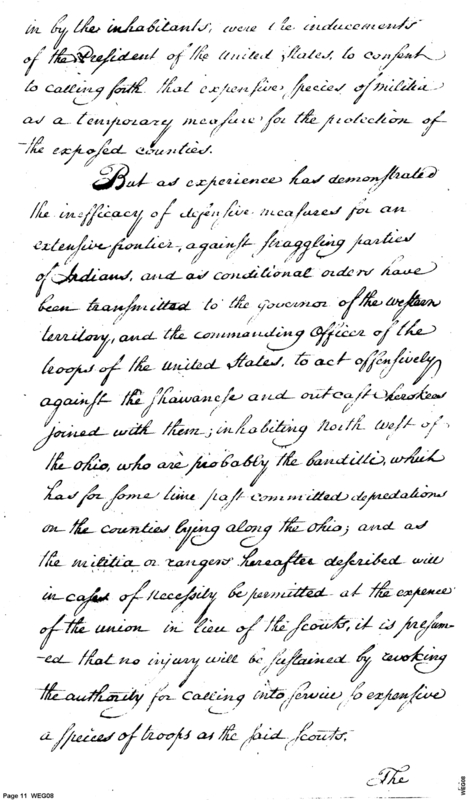 in by the inhabitants, were the inducements
of the President of the United States, to consent
to calling forth that expensive, species of militia
as a temporary measure for the protection of
the exposed counties.
But as experience has demonstrated
the inefficacy of defensive measures for an
extensive frontier, against straggling parties
of Indians, and as conditional orders have
been transmitted to the Governor of the western
territory, and the commanding Officer of the
troops of the United States, to act offensively
against the Shawanese and outcast Cherokees
joined with them; inhabiting North West of
the Ohio, who are probably the banditti, which
has for some time past committed depredations
on the counties lying along the Ohio; and as
the militia or rangers hereafter described will
in cases of necessity be permitted at the expence
of the union in lieu of the scouts, it is presum-
-ed that no injury will be sustained by revoking
the authority for calling into service so expensive
a speices of troops as the said scouts.
The
Page 11 WEG08
WEG08